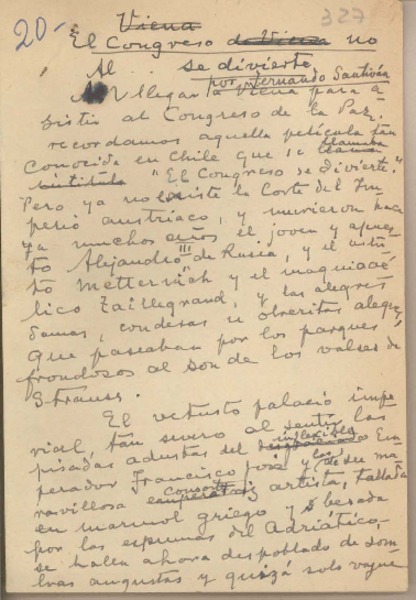 Viena
20- 327
El Congreso de Viena no
se divierte
por Fernando Santiván
Al llegar a Viena para a
sistir al Congreso de la Paz,
recordamos aquella película tan
conocida en Chile que se llamaba
intitula "El Congreso se divierte".
Pero ya no existe la Corte del Im
perio austriaco, y murieron hace
ya muchos años el joven y apues
to Alejandro III de Rusia, y el astu
to Metternich y el maquiavé
lico Taillegrand, y las alegres
damas, condesas u obreritas alegres,
que paseaban por los parques
frondozos al son de los valses de
Strauss.
El vetusto palacio impe
rial, tan severo al sentir las
pisadas adustas del inflexible Em
perador Francisco José y las de su ma
ravillosa consorte artista, tallada
en marmol griego y besada
por las espumas del Adriático,
se halla ahora despoblado de som
bras augustas y quizá solo vague